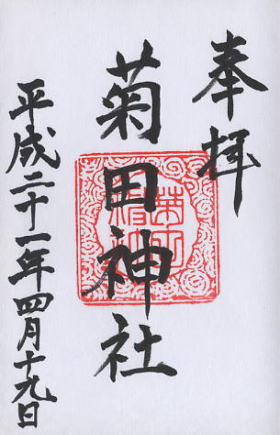 奉拝
菊田神社
平成二十一年四月十九日